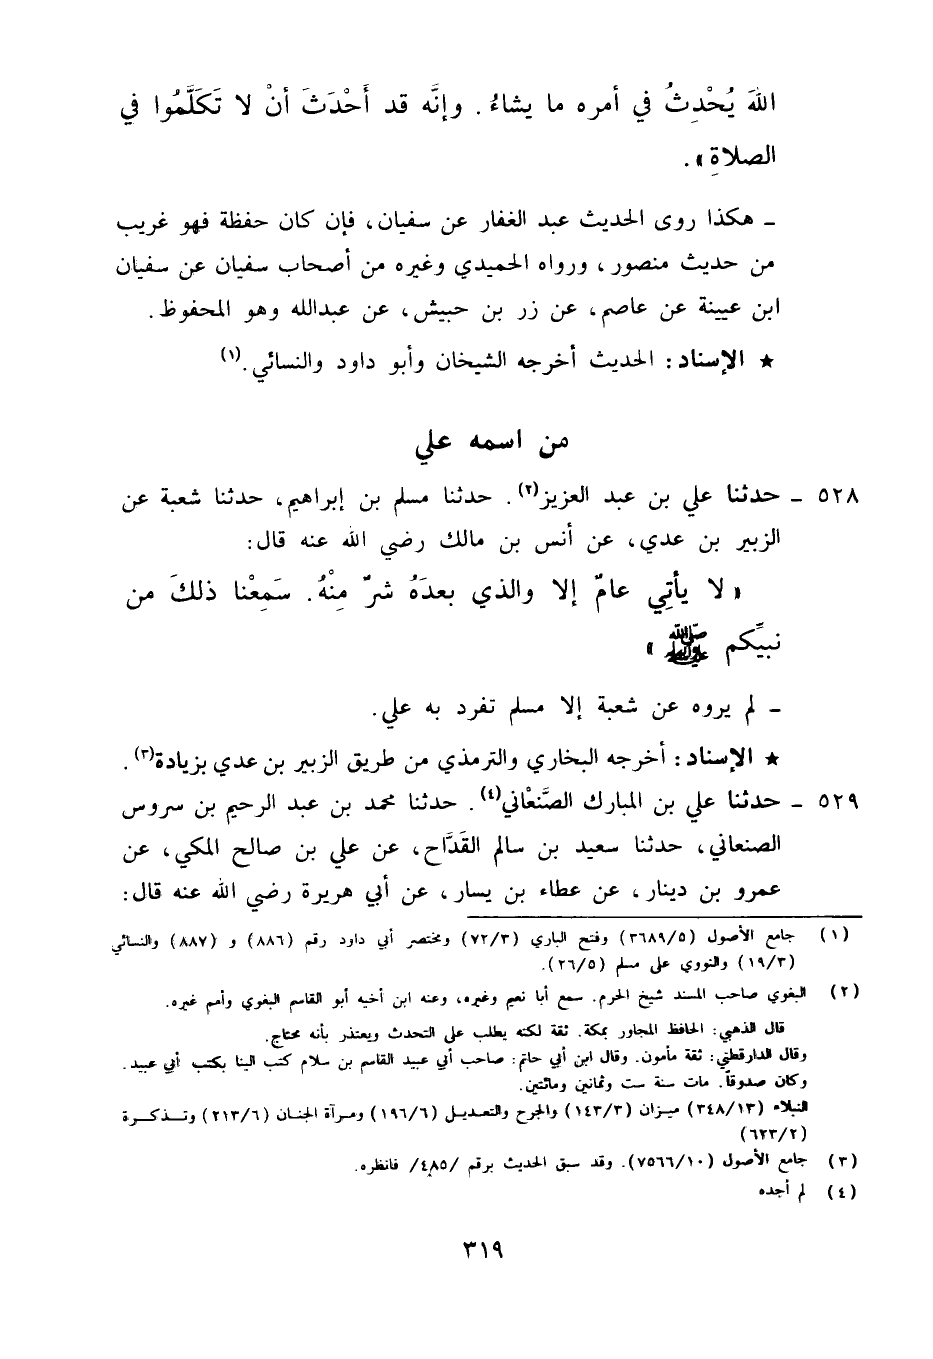 اللهَ يُحْدِثُ في أمره ما يشاءُ . وإنَّه قد أَحْدَثَ أنْ لا تَكَلَّمُوا في
الصلاةِ» .
ـ هكذا روى الحديث عبد الغفار عن سفيان، فإن كان حفظة فهو غريب
من حديث منصور، ورواه الحميدي وغيره من أصحاب سفيان عن سفيان
ابن عيينة عن عاصم، عن زر بن حبيش، عن عبدالله وهو المحفوظ.
★ الإسناد: الحديث أخرجه الشيخان وأبو داود والنسائي.(١)
من اسمه علي
٥٢٨ ـ حدثنا علي بن عبد العزيز(٢). حدثنا مسلم بن إبراهيم، حدثنا شعبة عن
الزبير بن عدي، عن أنس بن مالك رضي الله عنه قال:
« لا يأتِي عامٌ إلا والذي بعدَهُ شرٌ مِنْهُ. سَمِعْنا ذلكَ من
نبيِّكم ﷺ »
ـ لم يروه عن شعبة إلا مسلم تفرد به علي.
★ الإسناد: أخرجه البخاري والترمذي من طريق الزبير بن عدي بزيادة(٣).
٥٢٩ ـ حدثنا علي بن المبارك الصَّنعْاني(٤). حدثنا محمد بن عبد الرحيم بن سروس
الصنعاني، حدثنا سعيد بن سالم القَدَّاح، عن علي بن صالح المكي، عن
عمرو بن دينار، عن عطاء بن يسار، عن أبي هريرة رضي الله عنه قال:
(١) جامع الأصول (٣٦٨٩/٥) وفتح الباري (٧٢/٣) ومختصر أبي داود رقم (٨٨٦) و (٨٨٧) والنسائي
(١٩/٣) والنووي على مسلم (٢٦/٥).
(٢) البغوي صاحب المسند شيخ الحرم. سمع أبا نعيم وغيره، وعنه ابن أخيه أبو القاسم البغوي وأمم غيره.
قال الذهبي: الحافظ المجاور بمكة. ثقة لكنه يطلب على التحدث ويعتذر بأنه محتاج.
وقال الدارقطني: ثقة مأمون. وقال ابن أبي حاتم: صاحب أبي عبيد القاسم بن سلام كتب الينا بكتب أبي عبيد.
وكان صدوقاً. مات سنة ست وثمانين ومائتين.
النبلاء (٣٤٨/١٣) ميزان (١٤٣/٣) والجرح والتعديل (١٩٦/٦) ومرآة الجنان (٢١٣/٦) وتـذكـرة
(٦٢٣/٢)
(٣) جامع الأصول (٧٥٦٦/١٠). وقد سبق الحديث برقم /٤٨٥/ فانظره.
(٤) لم أجده
٣١٩